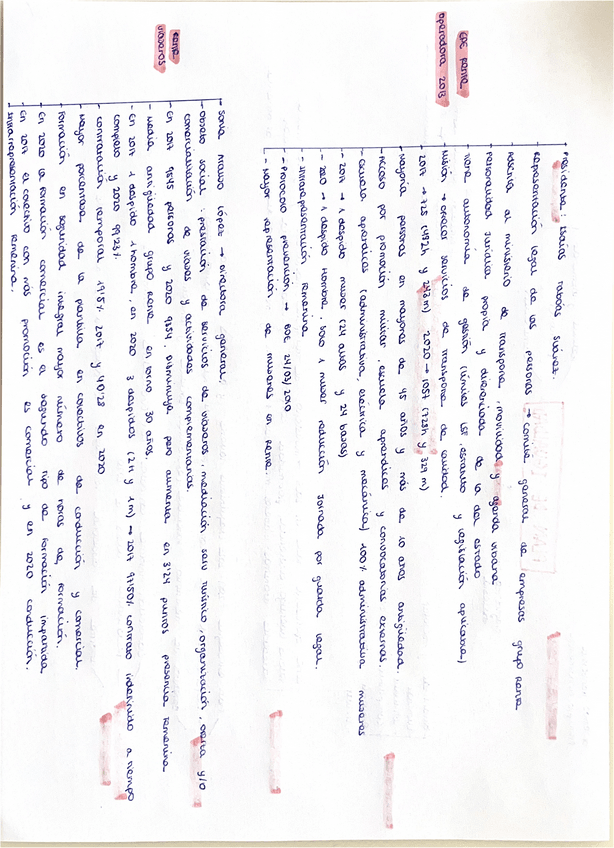 EPE Renfe
operadora 2013
Presidente: Isaías Taboás Suárez.
- Representación legal de las personas → comité general de empresas grupo Renfe
- Adscrita al ministerio de transporte, movilidad y agenda urbana
- Personalidad jurídica propia y diferenciada de la del estado
- Plena autonomía de gestión (límites LSP, estatuto y legislación aplicable)
- Misión → ofrecer servicios de transporte de calidad.
- 2017 → 725 (492h y 243 m) 2020 → 1057 (728h y 329 m)
- Mayoría personas en mayores de 45 años y más de 10 años antigüedad.
- Acceso por promoción militar, escuela aprendices y convocatorias externas.
- Escuela aprendices (administrativa, eléctrica y mecánica) 100% administrativa mujeres
- 2017 → 1 despido mujer (21 años y 24 bases)
- 2020 → 1 despido Hombre, solo 1 mujer reducción jornada por guarda legal.
- Infrarrepresentación femenina
- Protocolo prevención → BOE 24/03/2020
- Mayor representación de mujeres en Renfe.
Renfe
viajeros
- Sonia Araujo López → directora general.
- Objeto social: prestación de servicios de viajeros, mediación serv turístico, organización, oferta y/o
comercialización de viajes y actividades complementarias.
- En 2017 9545 personas y 2020 9254, disminuye pero aumenta en 3'24 puntos presencia femenina
- Media antigüedad grupo Renfe en torno 30 años.
- En 2017 1 despido 1 hombre, en 2020 3 despidos (2h y 1m) → 2017 97'50% contrato indefinido a tiempo
completo y 2020 99'24%.
- Contratación temporal 47'5% 2017 y 40'28 en 2020
- Mayor porcentaje de la plantilla en colectivos de conducción y comercial.
- Formación en seguridad integral mayor número de horas de formación.
- En 2020 la formación comercial es el segundo tipo de formación impartida
- En 2017 el colectivo con más promoción es comercial y en 2020 conducción.
- Infrarrepresentación femenina.